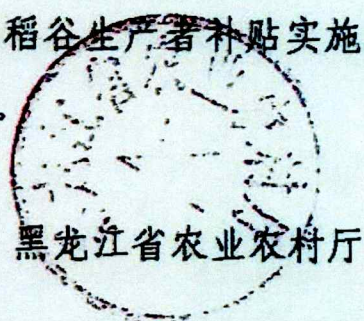 稻谷生产者补贴实施
黑龙江省农业农村厅